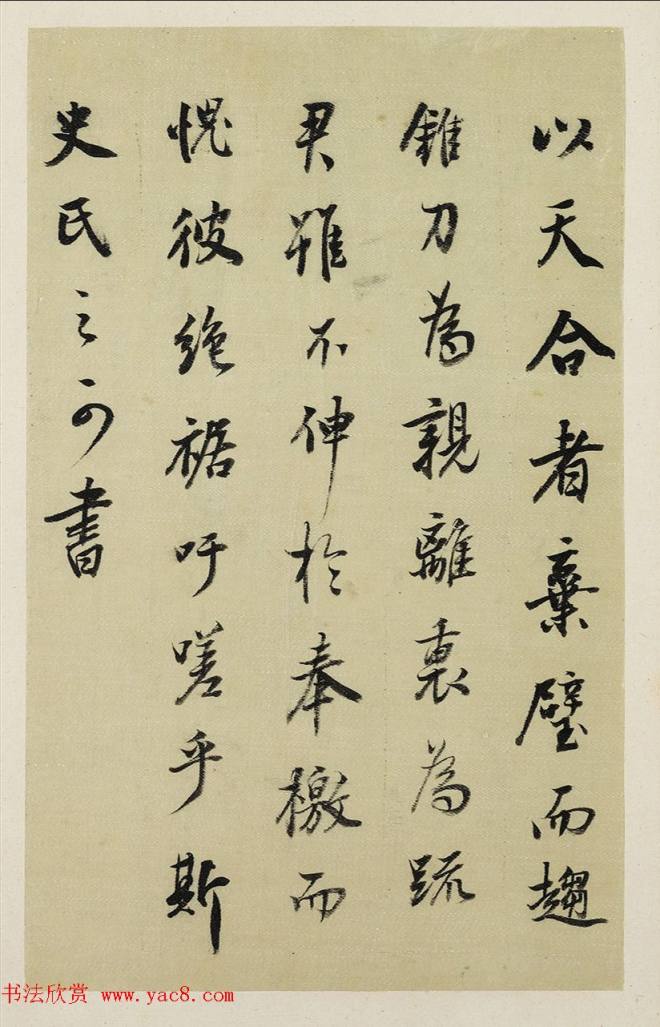 以天合者棄璧而趨
錐刀為親離裏為疏
君雖不伸於奉檄而
愧彼絶裾吁嗟乎斯
史氏之可書
书法欣赏 www.yac8.com